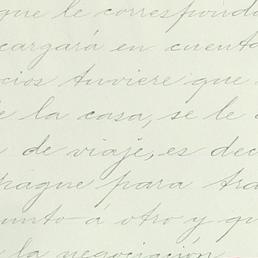 que le correspond
cargará en cuent
cios tuviere que
e la casa, se le
de viaje, es dec
pague para tra
punto á otro y qu
la negociación